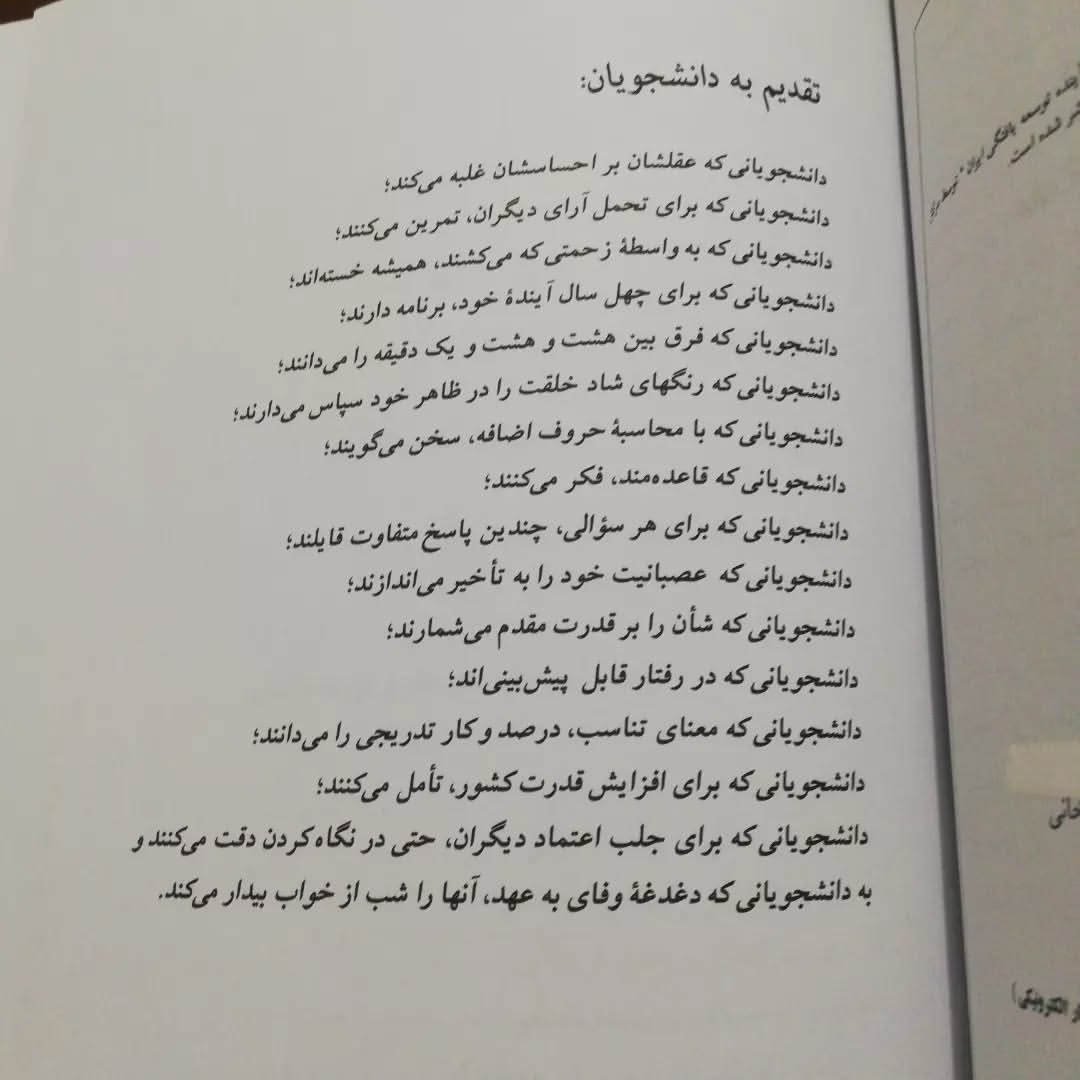 تقدیم به دانشجویان:
دانشجویانی که عقلشان بر احساسشان غلبه می‌کند؛
دانشجویانی که برای تحمل آرای دیگران، تمرین می‌کنند؛
دانشجویانی که به واسطهٔ زحمتی که می‌کشند، همیشه خسته‌اند؛
دانشجویانی که برای چهل سال آیندهٔ خود، برنامه دارند؛
دانشجویانی که فرق بین هشت و هشت و یک دقیقه را می‌دانند؛
دانشجویانی که رنگهای شاد خلقت را در ظاهر خود سپاس می‌دارند؛
دانشجویانی که با محاسبهٔ حروف اضافه، سخن می‌گویند؛
دانشجویانی که قاعده‌مند، فکر می‌کنند؛
دانشجویانی که برای هر سؤالی، چندین پاسخ متفاوت قایلند؛
دانشجویانی که عصبانیت خود را به تأخیر می‌اندازند؛
دانشجویانی که شأن را بر قدرت مقدم می‌شمارند؛
دانشجویانی که در رفتار قابل پیش‌بینی‌اند؛
دانشجویانی که معنای تناسب، درصد و کار تدریجی را می‌دانند؛
دانشجویانی که برای افزایش قدرت کشور، تأمل می‌کنند؛
دانشجویانی که برای جلب اعتماد دیگران، حتی در نگاه کردن دقت می‌کنند و
به دانشجویانی که دغدغهٔ وفای به عهد، آنها را شب از خواب بیدار می‌کند.
توسعه یافتگی ایران" توسط
شده است.
الکترونیکی)